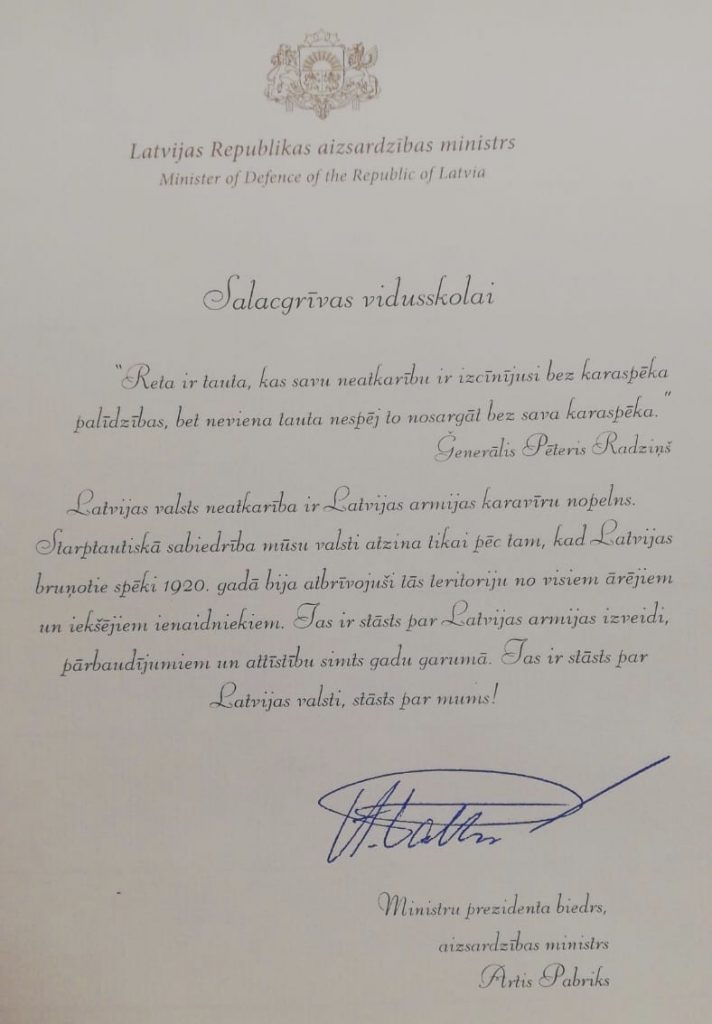 Latvijas Republikas aizsardzības ministrs
Minister of Defence of the Republic of Latvia
Salacgrīvas vidusskolai
"Reta ir tauta, kas savu neatkarību ir izcīnījusi bez karaspēka
palīdzības, bet neviena tauta nespēj to nosargāt bez sava karaspēka."
Ģenerālis Pēteris Radziņš
Latvijas valsts neatkarība ir Latvijas armijas karavīru nopelns.
Starptautiskā sabiedrība mūsu valsti atzina tikai pēc tam, kad Latvijas
bruņotie spēki 1920. gadā bija atbrīvojuši tās teritoriju no visiem ārējiem
un iekšējiem ienaidniekiem. Tas ir stāsts par Latvijas armijas izveidi,
pārbaudījumiem un attīstību simts gadu garumā. Tas ir stāsts par
Latvijas valsti, stāsts par mums!
Ministru prezidenta biedrs,
aizsardzības ministrs
Artis Pabriks